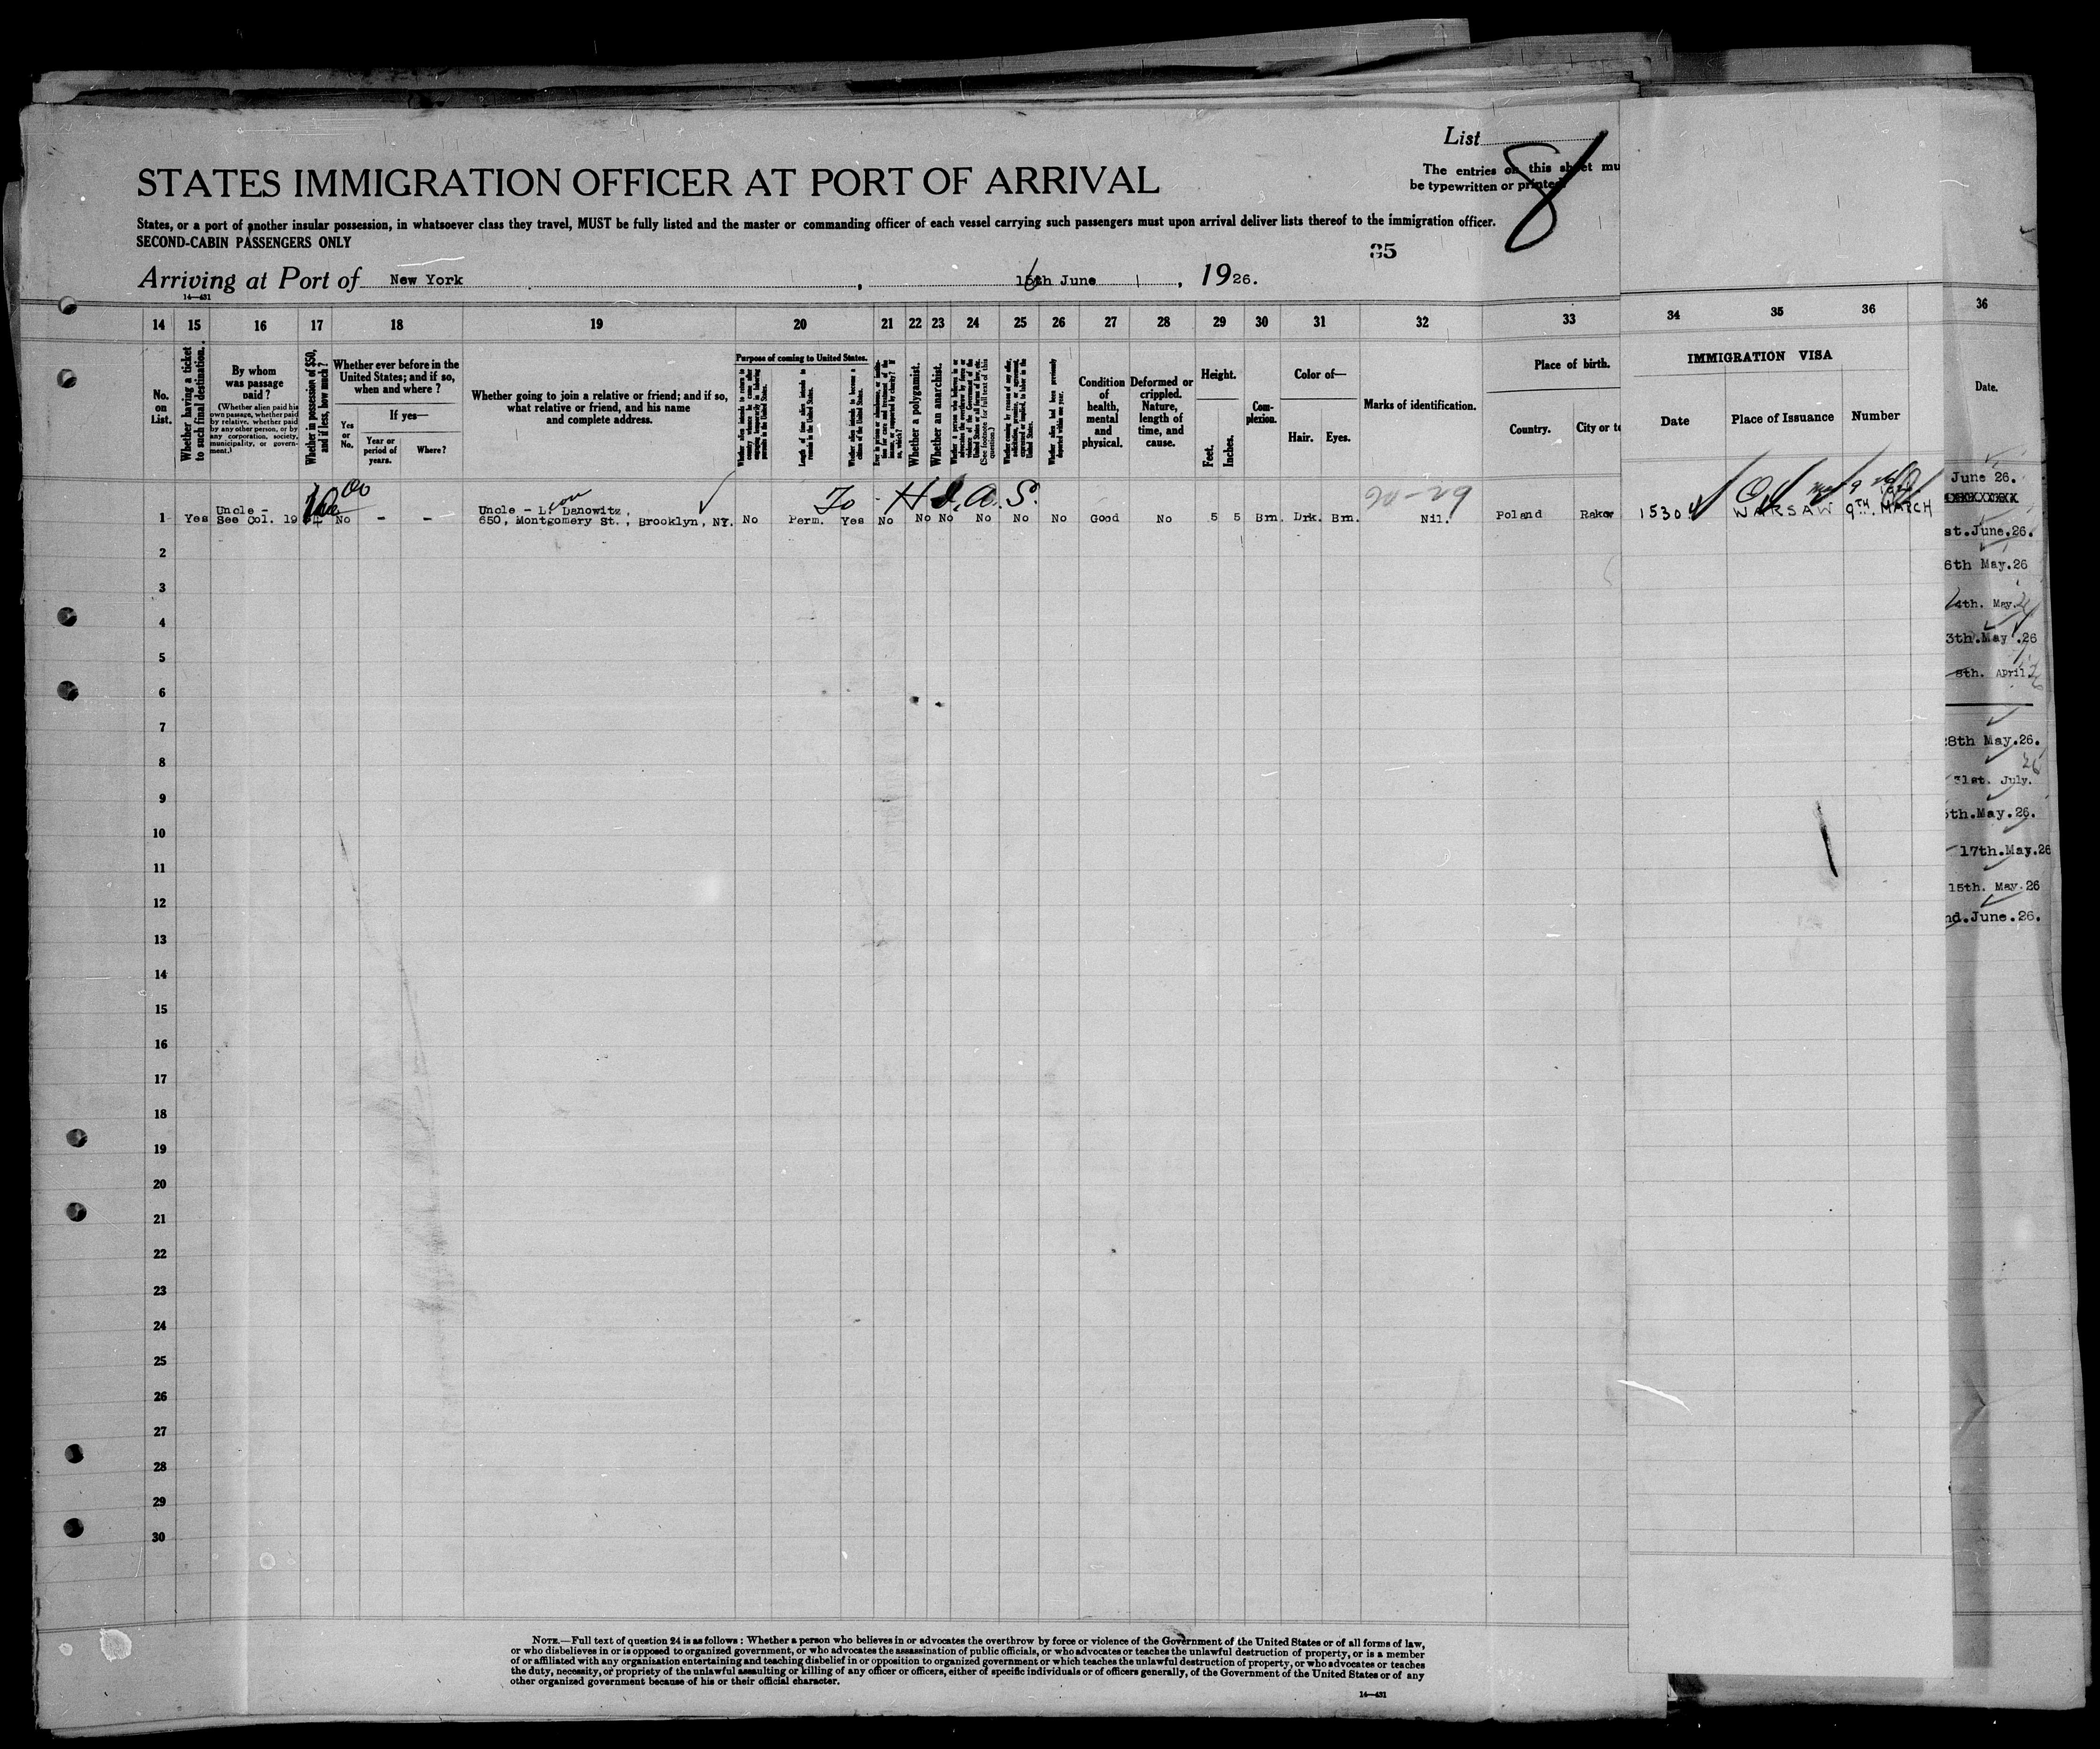 List
8
The entries on this sheet mu
be typewritten or printed
STATES IMMIGRATION OFFICER AT PORT OF ARRIVAL
States, or a port of another insular possession, in whatsoever class they travel, MUST be fully listed and the master or commanding officer of each vessel carrying such passengers must upon arrival deliver lists thereof to the immigration officer.
SECOND-CABIN PASSENGERS ONLY
35
Arriving at Port of New York, 16th June, 1926.
14—431
14 15 16 17 18 19 20 21 22 23 24 25 26 27 28 29 30 31 32 33 34 35 36 36
No. on List.
Whether having a ticket to such final destination.
By whom was passage paid?
(Whether alien paid his own passage, whether paid by relative, whether paid by any other person, or by any corporation, society, municipality, or government.)
Whether in possession of $50, and if less, how much?
Whether ever before in the United States; and if so, when and where?
Yes or No.
If yes—
Year or period of years.
Where?
Whether going to join a relative or friend; and if so, what relative or friend, and his name and complete address.
Purpose of coming to United States.
Length of time alien intends to remain in the United States.
Whether alien intends to become a citizen of the United States.
Whether a polygamist.
Whether an anarchist.
(See footnote for full text of this question.)
Condition of health, mental and physical.
Deformed or crippled. Nature, length of time, and cause.
Height.
Feet.
Inches.
Complexion.
Color of—
Hair. Eyes.
Marks of identification.
Place of birth.
Country.
City or to
IMMIGRATION VISA
Date
Place of Issuance
Number
Date.
To H.I.A.S.
20-29
1 Yes Uncle - See Col. 19 No - -
Uncle - L. Danowitz,
650, Montgomery St., Brooklyn, NY.
No Perm. Yes No No No No No No Good No 5 5 Brn. Drk. Brn. Nil. Poland Rakow 15304 WARSAW 9TH. MARCH
June 26.
st.June.26.
6th May.26
4th. May.
3th.May.26
8th. April.
28th May.26.
31st. July.
5th.May.26.
17th.May.26
15th. May.26
nd.June.26.
2
3
4
5
6
7
8
9
10
11
12
13
14
15
16
17
18
19
20
21
22
23
24
25
26
27
28
29
30
NOTE.—Full text of question 24 is as follows: Whether a person who believes in or advocates the overthrow by force or violence of the Government of the United States or of all forms of law,
or who disbelieves in or is opposed to organized government, or who advocates the assassination of public officials, or who advocates or teaches the unlawful destruction of property, or is a member
of or affiliated with any organization entertaining and teaching disbelief in or opposition to organized government or which teaches the unlawful destruction of property, or who advocates or teaches
the duty, necessity, or propriety of the unlawful assaulting or killing of any officer or officers, either of specific individuals or of officers generally, of the Government of the United States or of any
other organized government because of his or their official character.
14—431